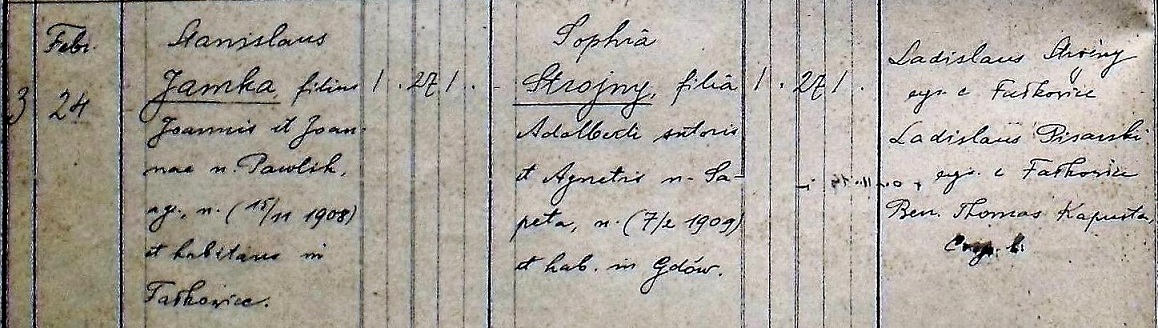 Febr.
3 24
Stanislaus
Jamka filius 1 . 27 1 . .
Joannis et Joan-
nae n. Pawlik,
agr., n. (15/11 1908)
et habitans in
Fałkowice.
Sophia
Strojny, filia 1 . 27 1 .
Adalberti sutoris
et Agnetis n. Sa-
peta, n. (7/2 1909)
et hab. in Gdów.
Ladislaus Strojny
agr. e Fałkowice
Ladislaus Pisarski
agr. e Fałkowice
Ben. Thomas Kapusta